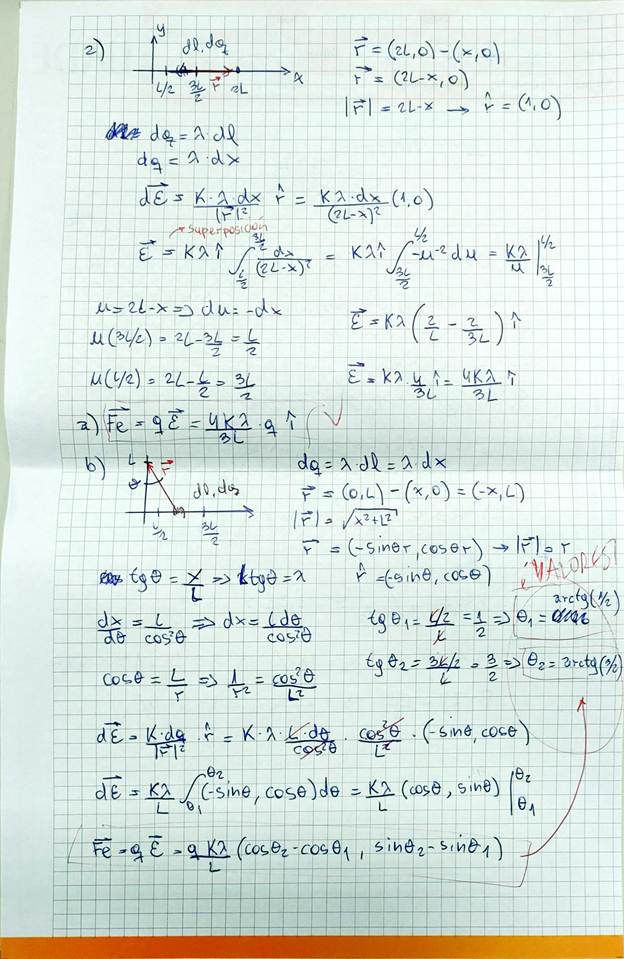 2) y dl, dq L/2 3L/2 r⃗ 2L x
r⃗ = (2L,0) - (x,0)
r⃗ = (2L-x, 0)
|r⃗| = 2L-x → r̂ = (1,0)
dq = λ·dl
dq = λ·dx
dE⃗ = K·λ·dx/|r⃗|² r̂ = Kλ·dx/(2L-x)² (1,0)
→ superposición
E⃗ = Kλ î ∫_{L/2}^{3L/2} dx/(2L-x)² = Kλ î ∫_{3L/2}^{L/2} -μ⁻² dμ = Kλ/μ |_{3L/2}^{L/2}
μ = 2L-x ⇒ dμ = -dx
μ(3L/2) = 2L - 3L/2 = L/2
μ(L/2) = 2L - L/2 = 3L/2
E⃗ = Kλ (2/L - 2/3L) î
E⃗ = Kλ · 4/3L î = 4Kλ/3L î
a) Fe⃗ = qE⃗ = 4Kλ/3L · q î
b) L r⃗ θ dl, dq L/2 3L/2
dq = λ·dl = λ·dx
r⃗ = (0,L) - (x,0) = (-x,L)
|r⃗| = √(x²+L²)
r⃗ = (-sinθr, cosθr) → |r⃗| = r
r̂ = (-sinθ, cosθ)
¿VALORES?
tgθ = x/L ⇒ Ltgθ = x
dx/dθ = L/cos²θ ⇒ dx = Ldθ/cos²θ
cosθ = L/r ⇒ 1/r² = cos²θ/L²
tgθ₁ = L/2/L = 1/2 ⇒ θ₁ = arctg(1/2)
tgθ₂ = 3L/2/L = 3/2 ⇒ θ₂ = arctg(3/2)
dE⃗ = K·dq/|r⃗|² · r̂ = K·λ·L·dθ/cos²θ · cos²θ/L² · (-sinθ, cosθ)
dE⃗ = Kλ/L ∫_{θ₁}^{θ₂} (-sinθ, cosθ)dθ = Kλ/L (cosθ, sinθ) |_{θ₁}^{θ₂}
Fe⃗ = qE⃗ = qKλ/L (cosθ₂-cosθ₁, sinθ₂-sinθ₁)